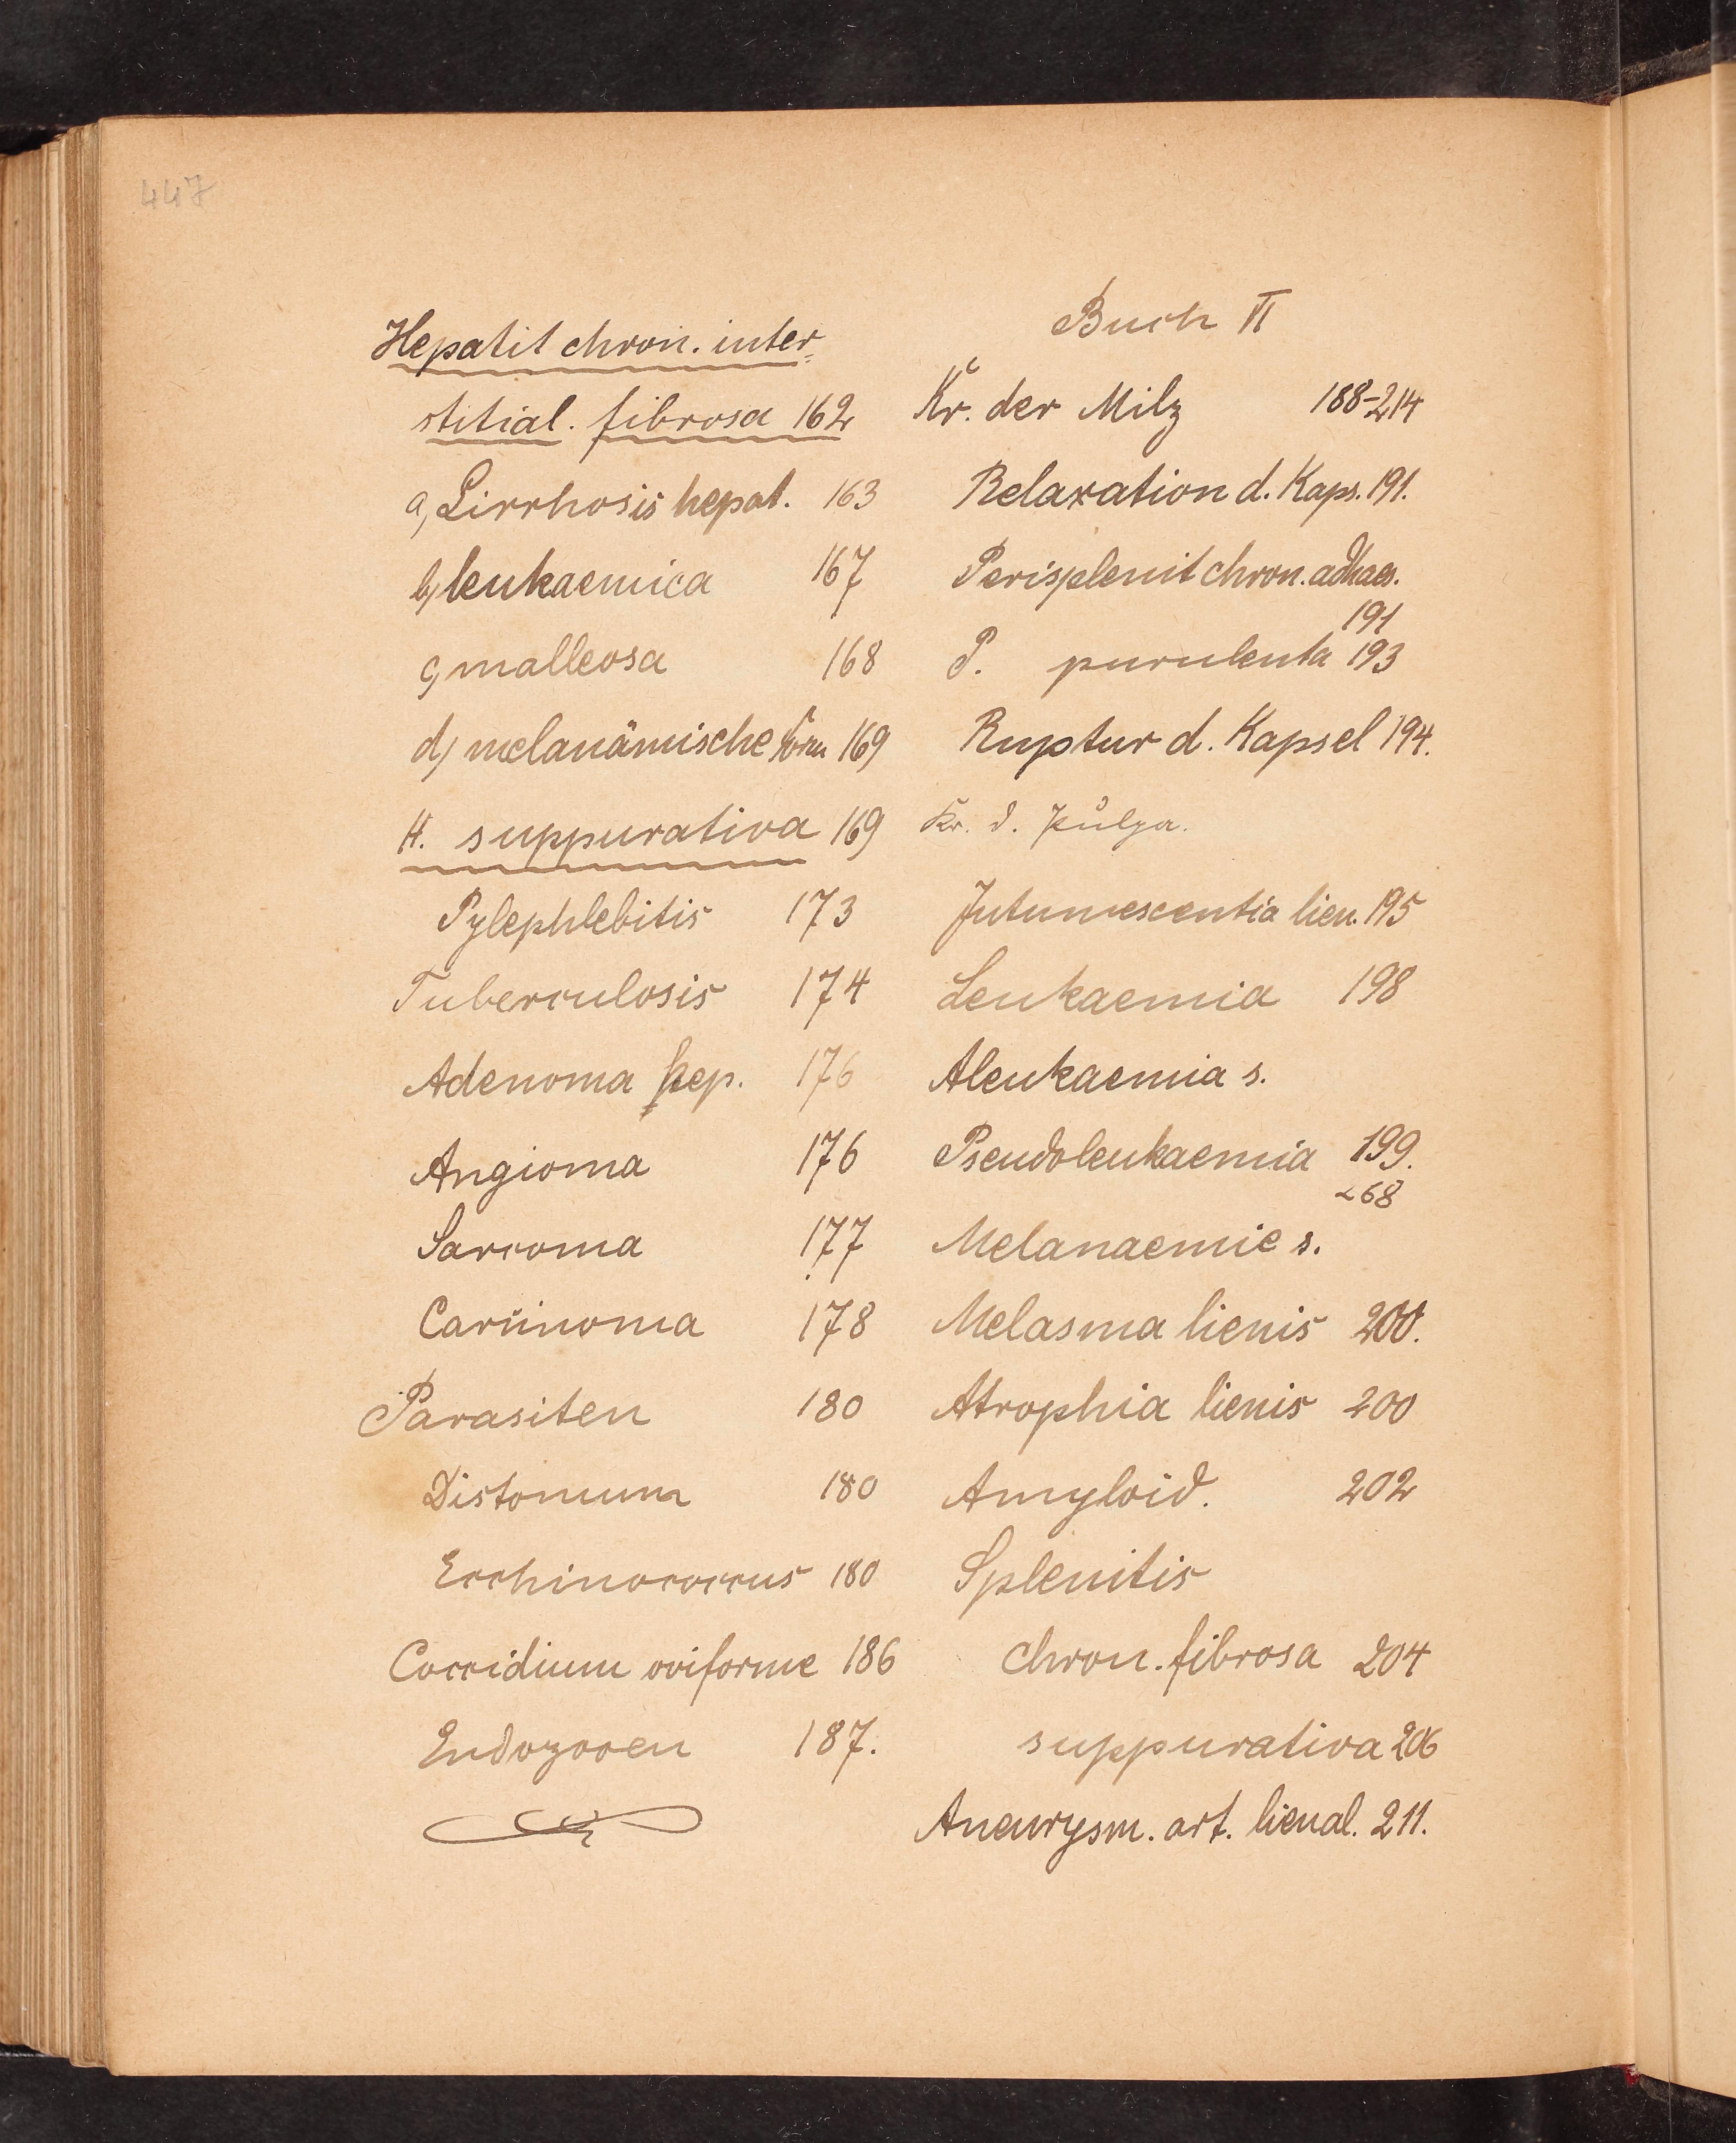 447
Hepatit chron. inter=
stitial. fibrosa 162
a, Cirrhosis hepat. 163
b, leukaemica 167
c, malleosa 168
d) melanämische Form 169
H. suppurativa 169
Pylephlebitis 173
Tuberculosis 174
Adenoma hep. 176
Angioma 176
Sarcoma 177
Carcinoma 178
Parasiten 180
Distomum 180
Ecchinococcus 180
Coccidium oviforme 186
Endozoen 187.
Buch VI
Kr. der Milz 188-214
Relaxation d. Kaps. 191.
Perisplenit chron. adhaes.
191
P. purulenta 193
Ruptur d. Kapsel 194.
Kr. d. Pulpa.
Intumescentia lien. 195
Leukaemia 198
Aleukaemia s.
Pseudoleukaemia 199.
268
Melanaemie s.
Melasma lienis 200.
Atrophia lienis 200
Amyloid. 202
Splenitis
chron. fibrosa 204
suppurativa 206
Aneurysm. art. lienal. 211.